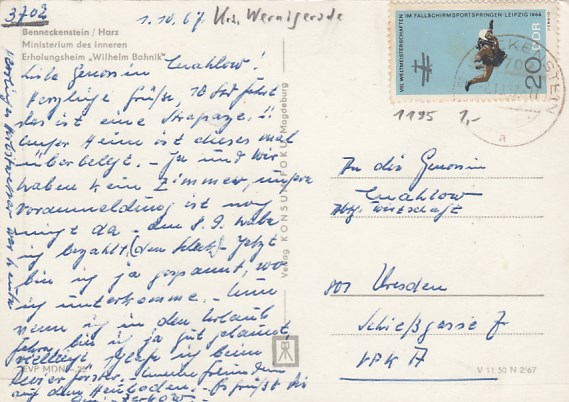 3702
1.10.67 Krs. Wernigerode
Benneckenstein / Harz
Ministerium des Inneren
Erholungsheim „Wilhelm Bahnik“
Liebe Genossin Machlow!
Herzliche Grüße,
das ist eine Strapaze.
unser Heim ist dieses mal
überbelegt. - Ja und wir
haben kein Zimmer, unsre
Voranmeldung ist noch
nicht da - dem 8.9. habe
ich bezahlt (den Scheck) - Jetzt
bin ich ja gespannt, wo
ich unterkomme. -
wenn ich in den Urlaub
fahre, bin ich ja gut gelaunt,
vielleicht schlafe ich beim
Revierförster,
auf dem Heuboden. - Es grüßt Sie
EVP MDN
Verlag KONSUM-FOTO Magdeburg
VIII. WELTMEISTERSCHAFTEN IM FALLSCHIRMSPORTSPRINGEN · LEIPZIG 1966
20 DDR
1195 1,-
a
An die Genossin
Machlow
Abtg. Wirtschaft
801 Dresden
Schießgasse 7
VPKA
V 11 50 N 2/67